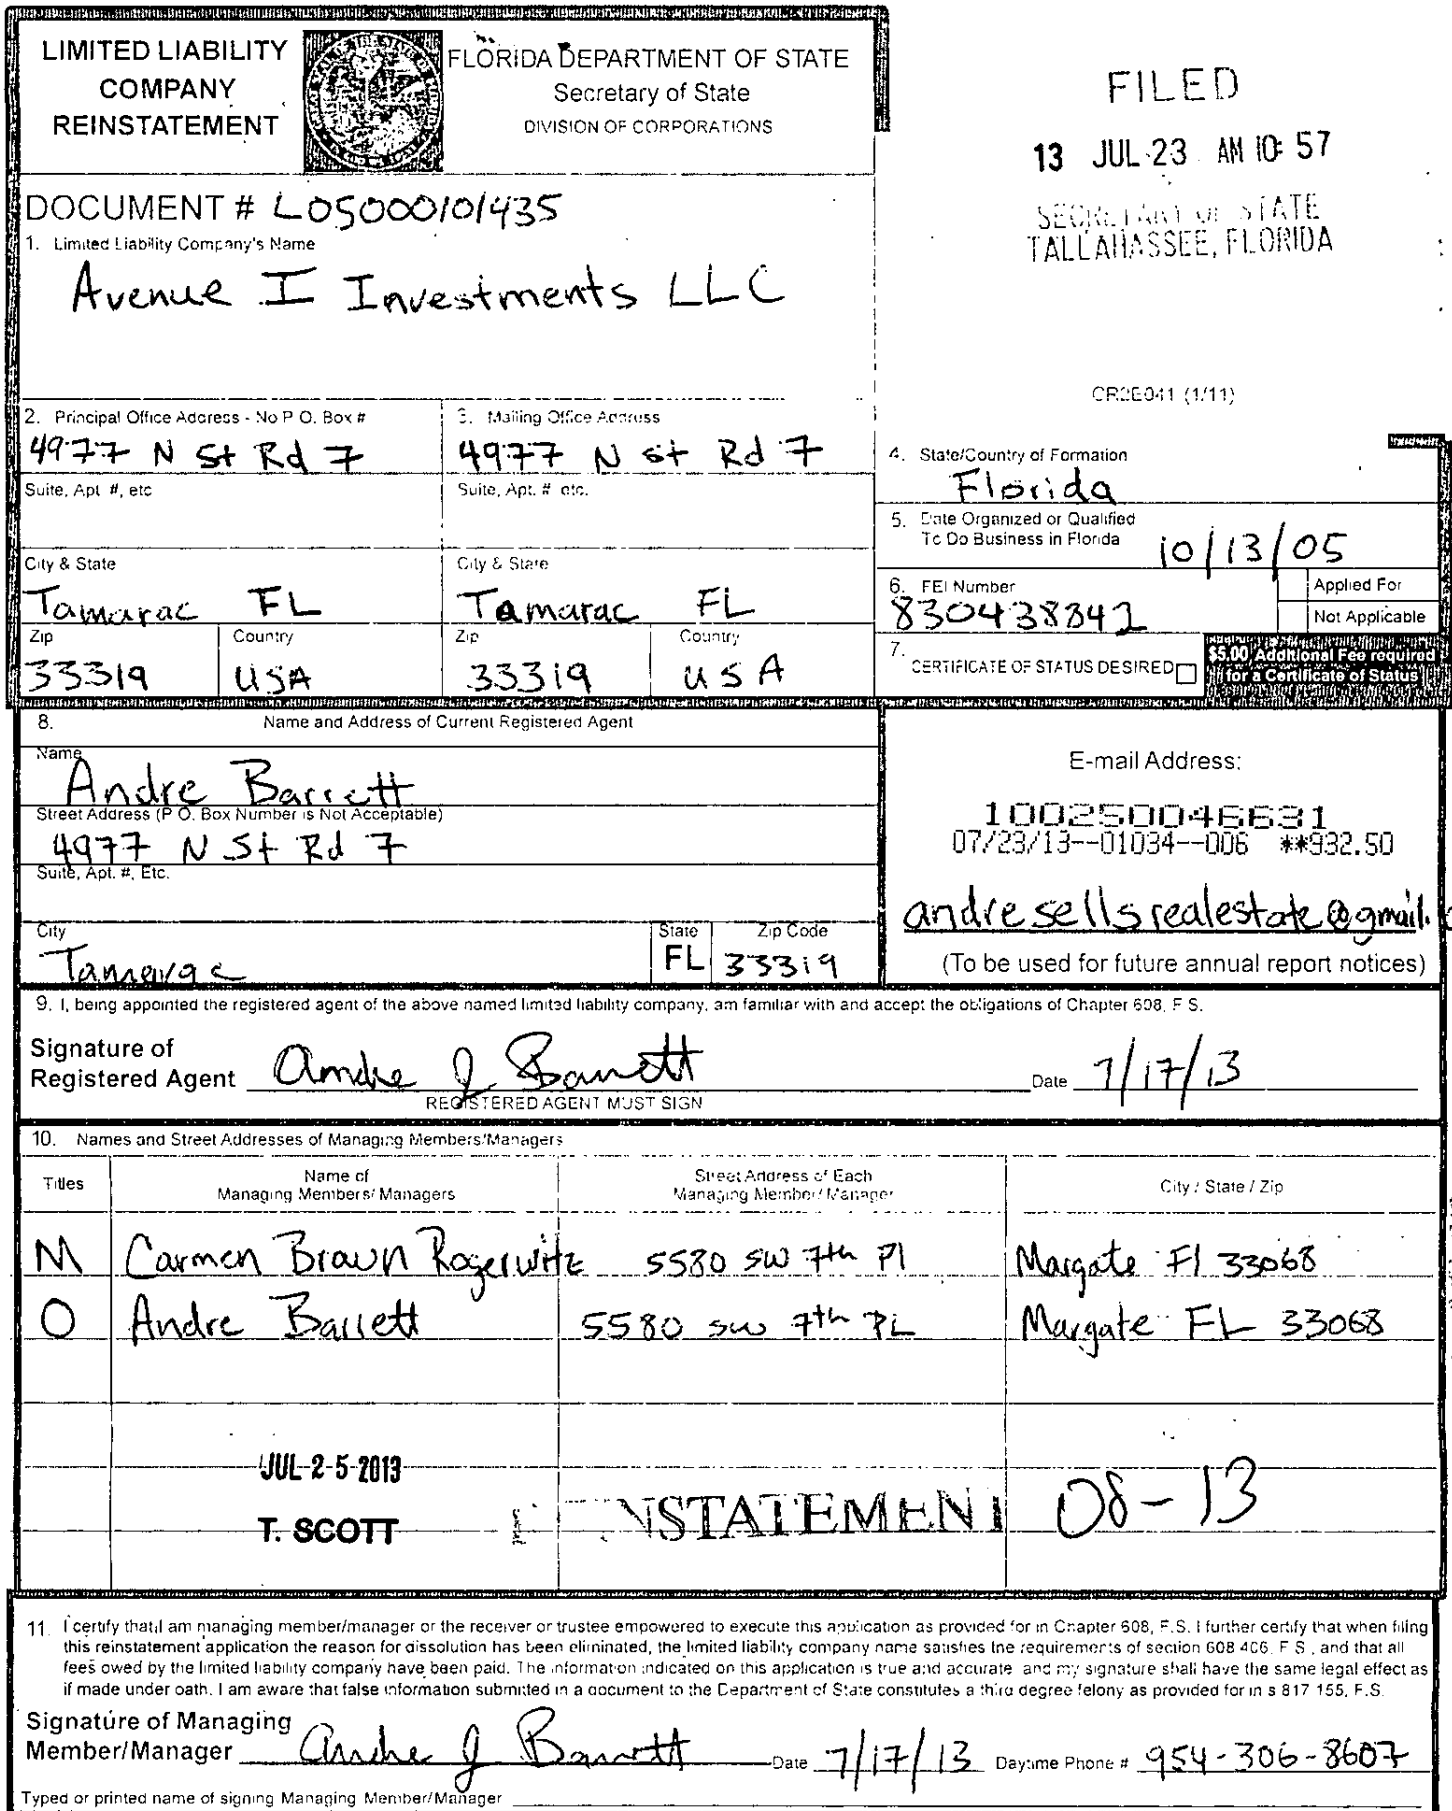 LIMITED LIABILITY
COMPANY
REINSTATEMENT
FLORIDA DEPARTMENT OF STATE
Secretary of State
DIVISION OF CORPORATIONS
FILED
13 JUL 23 AM 10: 57
SECRETARY OF STATE
TALLAHASSEE, FLORIDA
DOCUMENT # L05000101435
1. Limited Liability Company's Name
Avenue I Investments LLC
CR2E041 (1/11)
2. Principal Office Address - No P.O. Box #
4977 N St Rd 7
Suite, Apt. #, etc
City & State
Tamarac FL
Zip
33319
Country
USA
3. Mailing Office Address
4977 N St Rd 7
Suite, Apt. # etc.
City & State
Tamarac FL
Zip
33319
Country
USA
4. State/Country of Formation
Florida
5. Date Organized or Qualified
To Do Business in Florida
10/13/05
6. FEI Number
830438842
Applied For
Not Applicable
7. CERTIFICATE OF STATUS DESIRED
$5.00 Additional Fee required
for a Certificate of Status
8. Name and Address of Current Registered Agent
Name
Andre Barrett
Street Address (P.O. Box Number is Not Acceptable)
4977 N St Rd 7
Suite, Apt. #, Etc.
City
Tamarac
State
FL
Zip Code
33319
E-mail Address:
100250046631
07/23/13--01034--006 **932.50
andresellsrealestate@gmail.
(To be used for future annual report notices)
9. I, being appointed the registered agent of the above named limited liability company, am familiar with and accept the obligations of Chapter 608, F.S.
Signature of
Registered Agent Andre J Barrett
REGISTERED AGENT MUST SIGN
Date 7/17/13
10. Names and Street Addresses of Managing Members/Managers
Titles
Name of
Managing Members/ Managers
Street Address of Each
Managing Member/ Manager
City / State / Zip
M Carmen Braun Rogerwitz 5580 SW 7th Pl Margate Fl 33068
O Andre Barrett 5580 SW 7th PL Margate FL 33068
JUL 25 2013
T. SCOTT
NSTATEMENT 08-13
11. I certify that I am managing member/manager or the receiver or trustee empowered to execute this application as provided for in Chapter 608, F.S. I further certify that when filing
this reinstatement application the reason for dissolution has been eliminated, the limited liability company name satisfies the requirements of section 608.406, F.S., and that all
fees owed by the limited liability company have been paid. The information indicated on this application is true and accurate and my signature shall have the same legal effect as
if made under oath. I am aware that false information submitted in a document to the Department of State constitutes a third degree felony as provided for in s.817.155, F.S.
Signature of Managing
Member/Manager Andre J Barrett Date 7/17/13 Daytime Phone # 954-306-8607
Typed or printed name of signing Managing Member/Manager